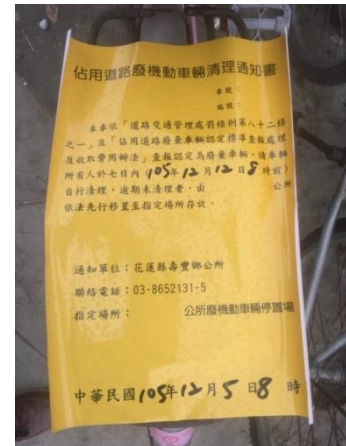 佔用道路廢機動車輛清理通知書
車號：
編號：
本車依「道路交通管理處罰條例第八十二條
之一」及「佔用道路廢棄車輛認定標準查報處理
及收取費用辦法」查報認定為廢棄車輛，請車輛
所有人於七日內（105年12月12日8時前）
自行清理，逾期未清理者，由 公所
依法先行移置至指定場所存放。
通知單位：花蓮縣壽豐鄉公所
聯絡電話：03-8652131-5
指定場所： 公所廢機動車輛停置場
中華民國105年12月5日8時